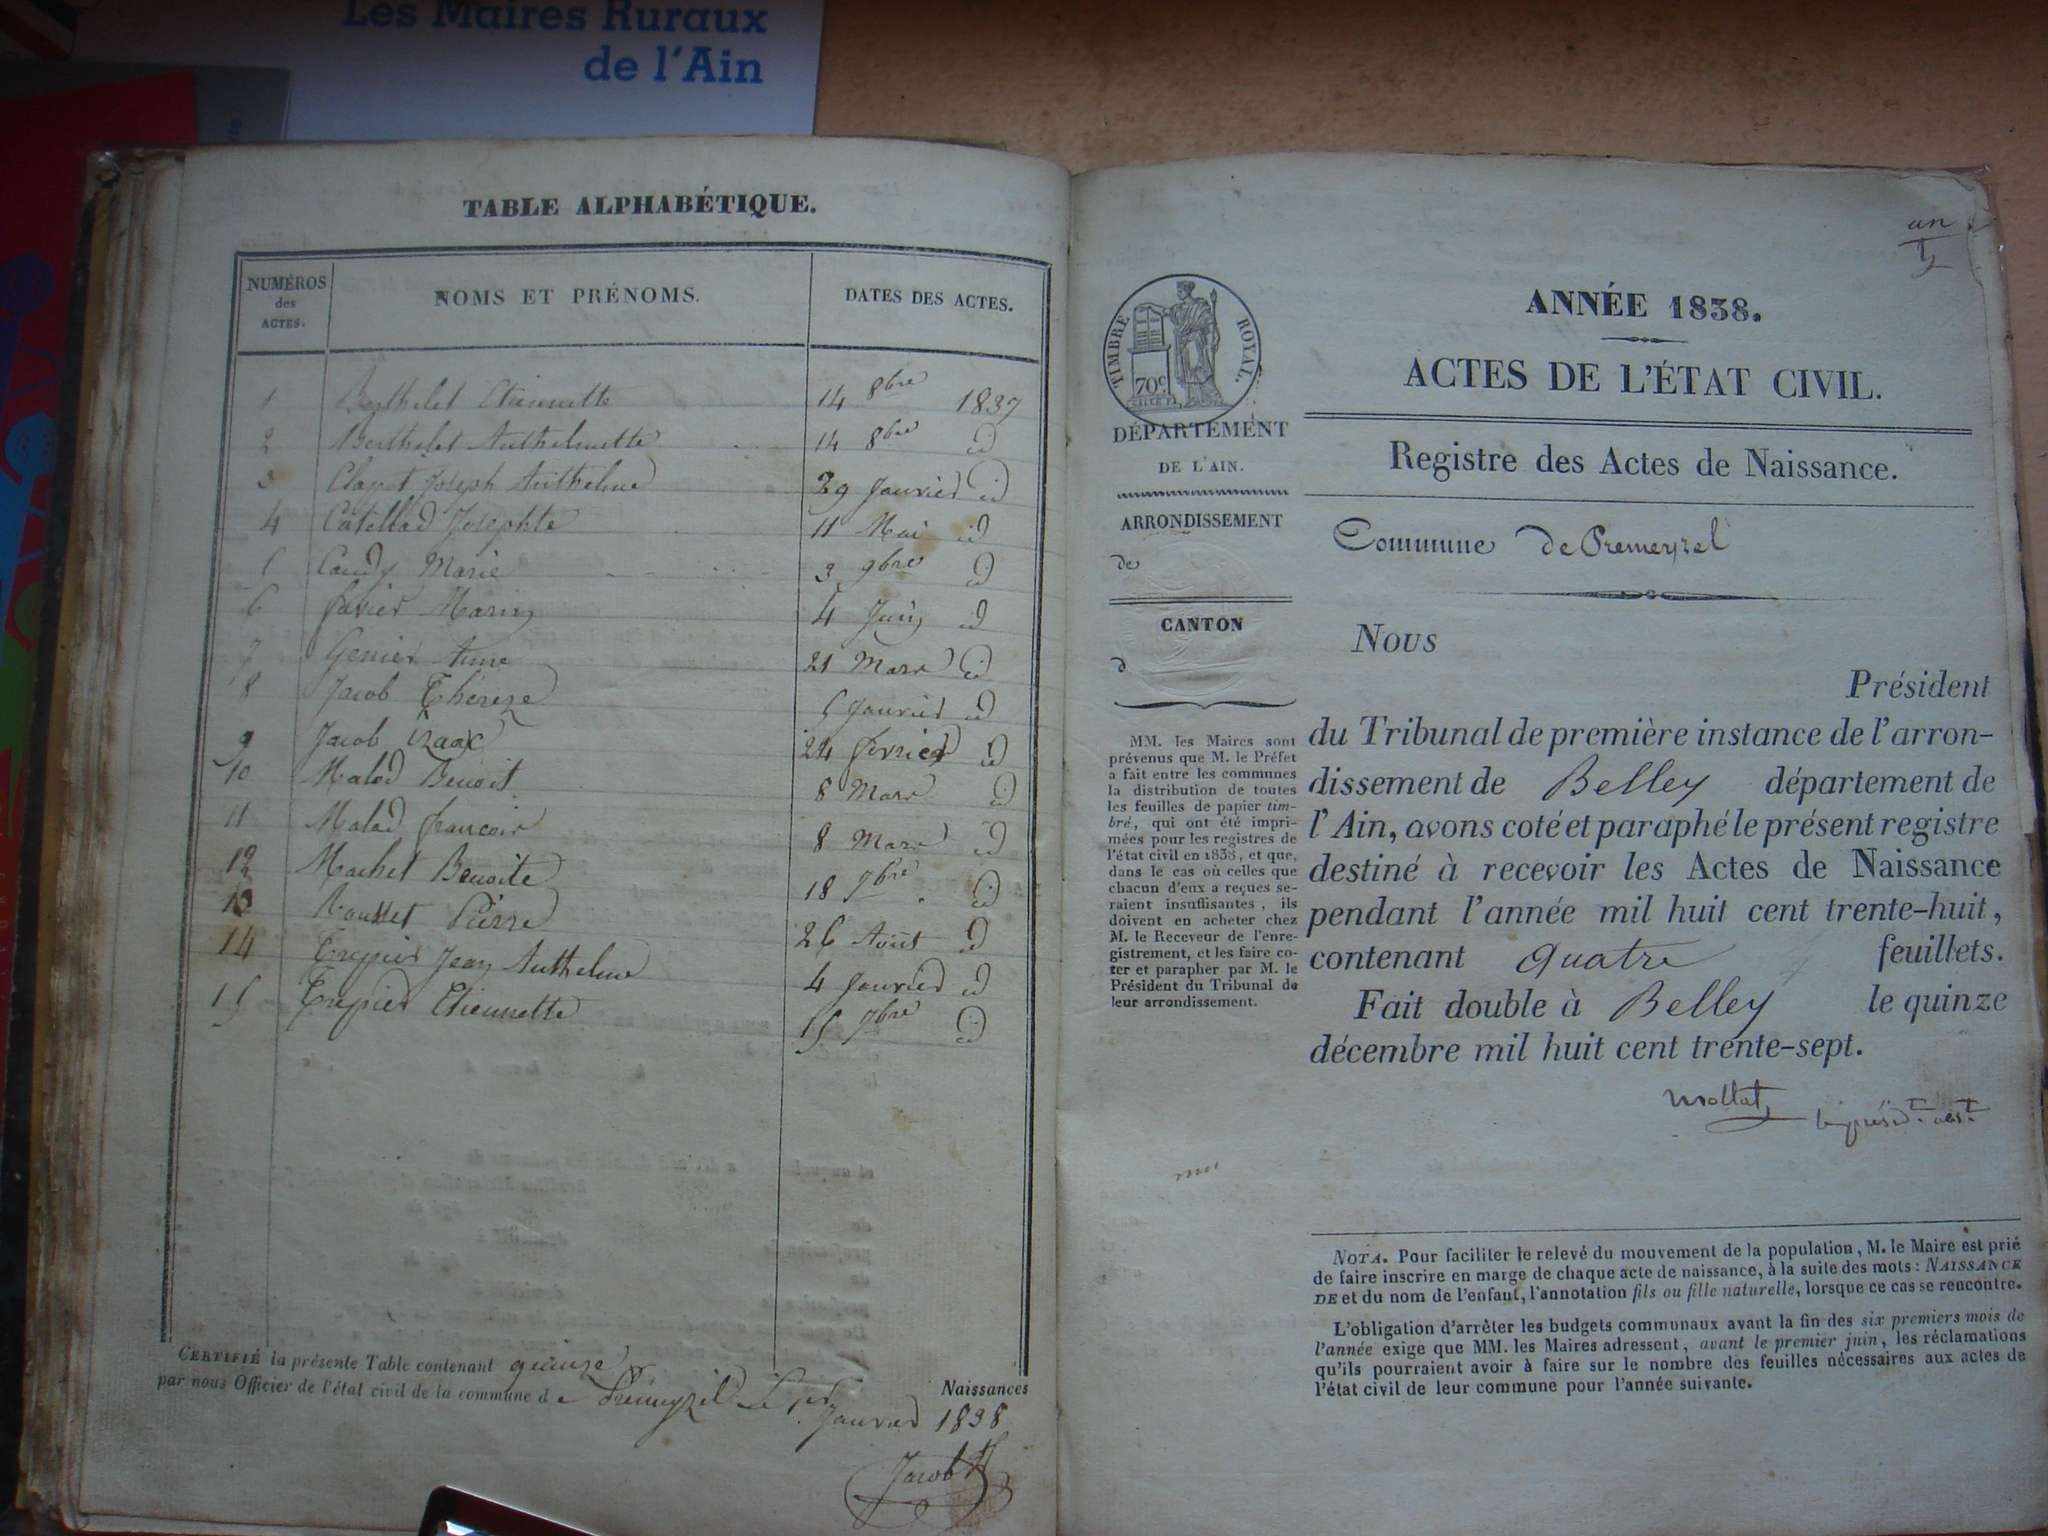 Les Maires Ruraux
de l'Ain
TABLE ALPHABÉTIQUE.
NUMÉROS
des
ACTES.
NOMS ET PRÉNOMS.
DATES DES ACTES.
1 Berthelet Etiennette 14 8bre 1837
2 Berthelet Anthelmette 14 8bre id
3 Clapet Joseph Anthelme 29 Janvier id
4 Catellad Josephte 11 Mai id
5 Caudy Marie 3 9bre id
6 favier Marin 4 Juin id
7 Genier Anne 21 Mars id
8 Jacob Thérèze 5 Janvier id
9 Jacob Izaac 24 fevrier id
10 Malod Benoit 8 Mars id
11 Malod francois 8 Mars id
12 Machet Benoite 18 7bre id
13 Rousset Pierre 26 Août id
14 Trepier Jean Anthelme 4 Janvier id
15 Trepier Etiennette 15 7bre id
CERTIFIÉ la présente Table contenant quinze Naissances
par nous Officier de l'état civil de la commune de Prémeyzel Le 1er
Janvier 1838
Jacob
un
TIMBRE ROYAL.
70c
DÉPARTEMENT
DE L'AIN.
ARRONDISSEMENT
de
CANTON
d
MM. les Maires sont
prévenus que M. le Préfet
a fait entre les communes
la distribution de toutes
les feuilles de papier tim-
bré, qui ont été impri-
mées pour les registres de
l'état civil en 1838, et que,
dans le cas où celles que
chacun d'eux a reçues se-
raient insuffisantes, ils
doivent en acheter chez
M. le Receveur de l'enre-
gistrement, et les faire co-
ter et parapher par M. le
Président du Tribunal de
leur arrondissement.
ANNÉE 1838.
ACTES DE L'ÉTAT CIVIL.
Registre des Actes de Naissance.
Commune de Premeyzel
Nous
Président
du Tribunal de première instance de l'arron-
dissement de Belley département de
l'Ain, avons coté et paraphé le présent registre
destiné à recevoir les Actes de Naissance
pendant l'année mil huit cent trente-huit,
contenant quatre feuillets.
Fait double à Belley le quinze
décembre mil huit cent trente-sept.
Mollat
NOTA. Pour faciliter le relevé du mouvement de la population, M. le Maire est prié
de faire inscrire en marge de chaque acte de naissance, à la suite des mots: NAISSANCE
DE et du nom de l'enfant, l'annotation fils ou fille naturelle, lorsque ce cas se rencontre.
L'obligation d'arrêter les budgets communaux avant la fin des six premiers mois de
l'année exige que MM. les Maires adressent, avant le premier juin, les réclamations
qu'ils pourraient avoir à faire sur le nombre des feuilles nécessaires aux actes de
l'état civil de leur commune pour l'année suivante.